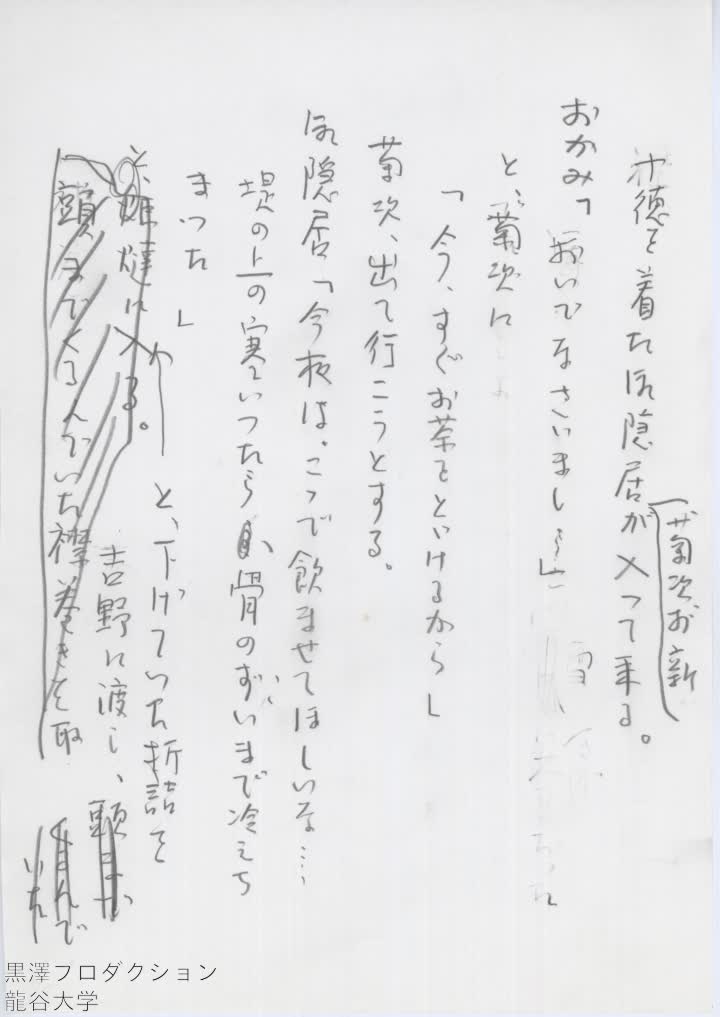 被徳を着た御隠居が入って来る。
菊次お新
おかみ「おいでなさいまし……」
と、菊次に
「今、すぐお茶をいけるから」
菊次、出て行こうとする。
御隠居「今夜は、こゝで飲ませてほしいな…
堤の上の寒いったら 骨のずいまで冷えち
まった」
と、下げていた折詰を
吉野に渡し、
と、炬燵に入る。
頭までくるんでいた襟巻きを取
黒澤プロダクション
龍谷大学